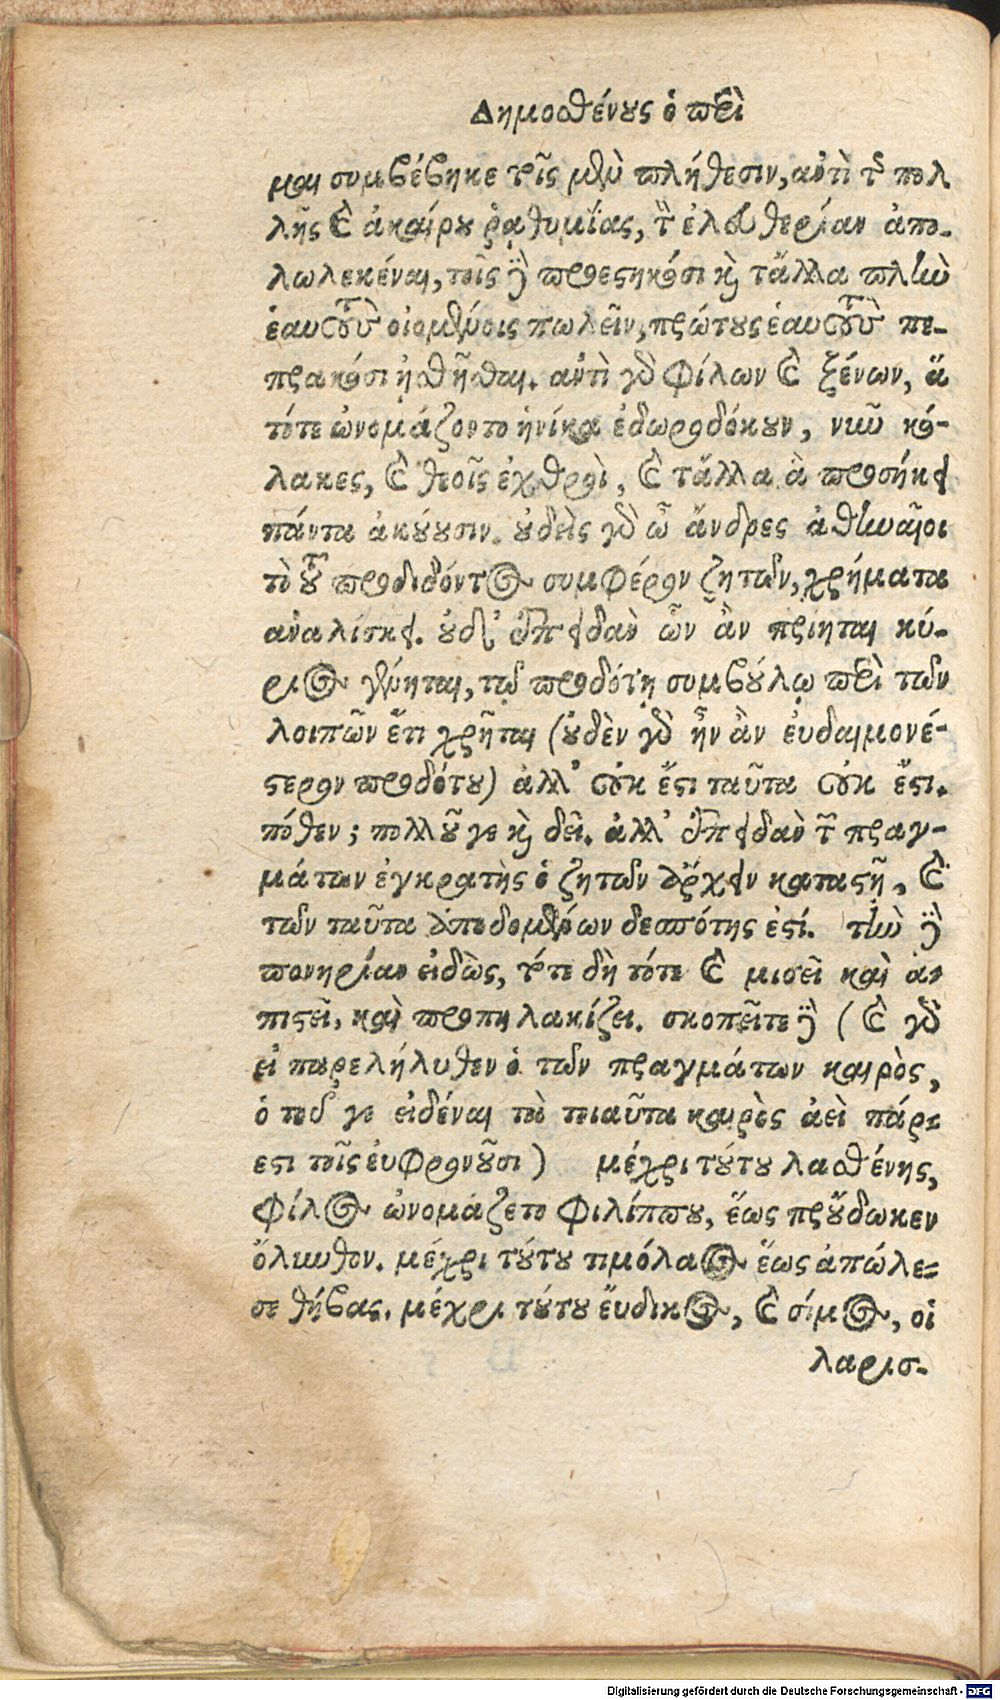 Δημοσθένους ὁ περὶ
μαι συμβέβηκε τοῖς μὲν πλήθεσιν, ἀντὶ τῆς πολ
λῆς καὶ ἀκαίρου ῥᾳθυμίας, τὴν ἐλευθερίαν ἀπο-
λωλεκέναι, τοῖς δὲ προεστηκόσι καὶ τἄλλα πλὴν
ἑαυτοὺς οἰομένοις πωλεῖν, πρώτους ἑαυτοὺς πε-
πρακόσι ᾐσθῆσθαι. ἀντὶ γὰρ φίλων καὶ ξένων, ἃ
τότε ὠνομάζοντο ἡνίκα ἐδωροδόκουν, νῦν κό-
λακες, καὶ θεοῖς ἐχθροὶ, καὶ τἄλλα ἃ προσήκει
πάντα ἀκούουσιν. οὐδεὶς γὰρ ὦ ἄνδρες ἀθηναῖοι
τὸ τοῦ προδιδόντος συμφέρον ζητῶν, χρήματα
ἀναλίσκει. οὐδ' ἐπειδὰν ὧν ἂν πρίηται κύ-
ριος γένηται, τῷ προδότῃ συμβούλῳ περὶ τῶν
λοιπῶν ἔτι χρῆται (οὐδὲν γὰρ ἦν ἂν εὐδαιμονέ-
στερον προδότου) ἀλλ' οὐκ ἔστι ταῦτα οὐκ ἔστι.
πόθεν; πολλοῦ γε καὶ δεῖ. ἀλλ' ἐπειδὰν τῶν πραγ-
μάτων ἐγκρατὴς ὁ ζητῶν ἄρχειν καταστῇ, καὶ
τῶν ταῦτα ἀποδομένων δεσπότης ἐστί. τὴν δὲ
πονηρίαν εἰδὼς, τότε δὴ τότε καὶ μισεῖ καὶ ἀ-
πιστεῖ, καὶ προπηλακίζει. σκοπεῖτε δὲ (καὶ γὰρ
εἰ παρελήλυθεν ὁ τῶν πραγμάτων καιρὸς,
ὁ τοῦ γε εἰδέναι τὰ τοιαῦτα καιρὸς ἀεὶ πάρε-
εστι τοῖς εὐφρονοῦσι) μέχρι τούτου λασθένης,
φίλος ὠνομάζετο φιλίππου, ἕως προὔδωκεν
ὄλυνθον. μέχρι τούτου τιμόλαος ἕως ἀπώλε-
σε θήβας. μέχρι τούτου εὔδικος, καὶ σίμος, οἱ
λαρισ-
Digitalisierung gefördert durch die Deutsche Forschungsgemeinschaft - DFG